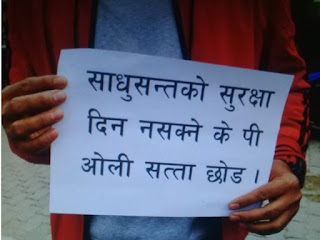 साधुसन्तको सुरक्षा
दिन नसक्ने के पी
ओली सत्ता छोड ।